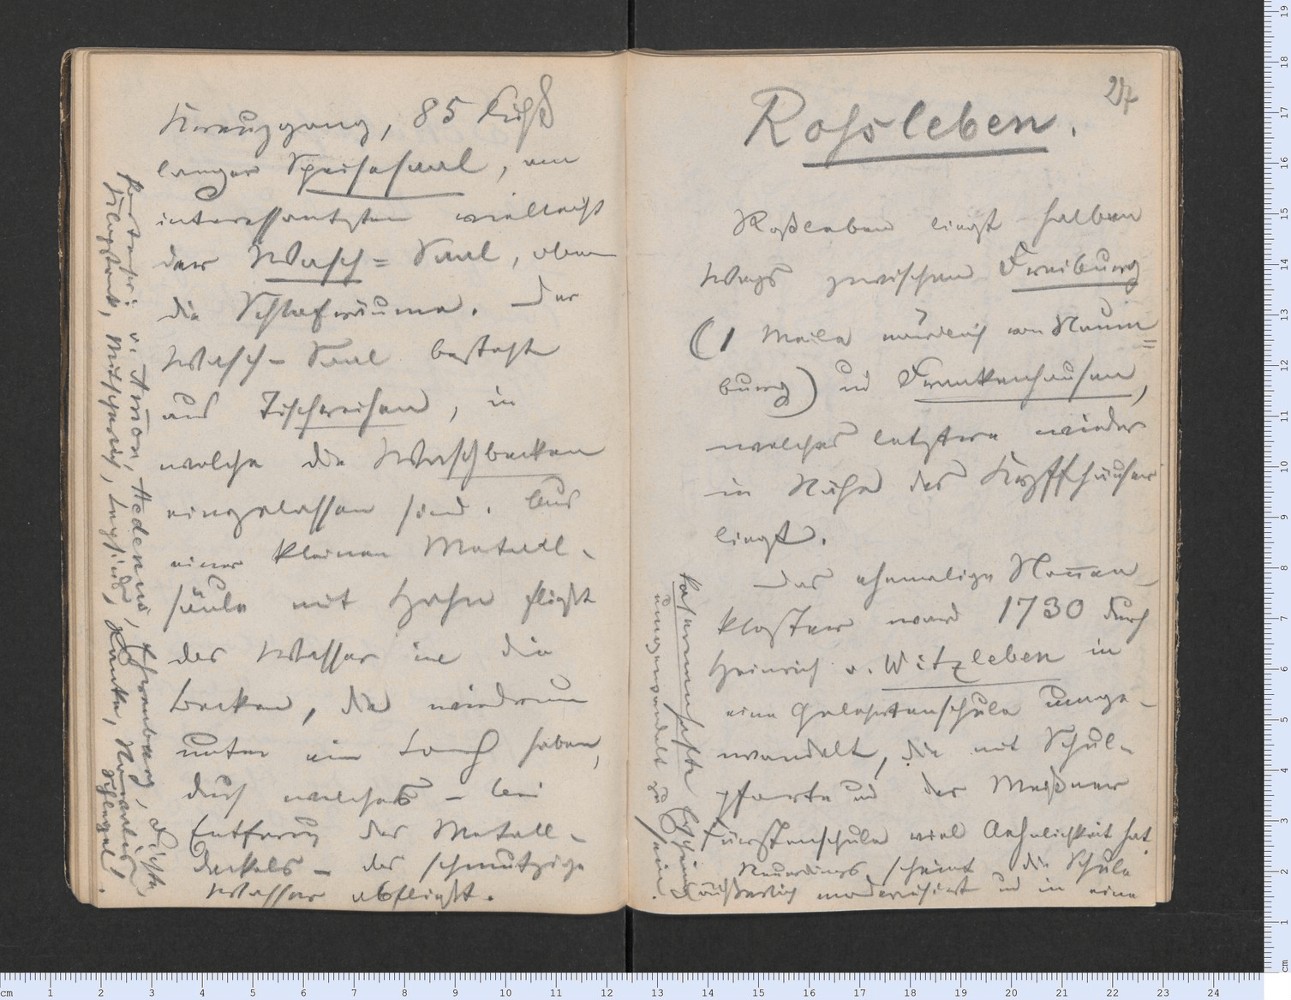 Kreuzgang, 85 Fuß
langer Speisesaal, am
interessantesten vielleicht
der Wasch= Saal, oben
die Schlafräume. Der
Wasch-Saal besteht
aus Tischreihen, in
welche die Waschbecken
eingelassen sind. Aus
einer kleinen Metall-
säule mit Hahn fließt
das Wasser in die
Becken, die wiederum
unten ein Loch haben,
durch welches – bei
Entferng des Metall-
deckels – das schmutzige
Wasser abfließt.
v. Am̅on, Hedenus, Ehrenberg, Fichte
Klopstock, Mitscherlich, Ranke, Novalis,
Schlegel.
27
Rossleben.
Roßleben liegt halben
Wegs zwischen Freiburg
(1 Meile nördlich von Naum=
burg) und Frankenhausen,
welches letztere wieder
in Nähe des Kyffhäuser
liegt.
Das ehemalige No̅nen-
kloster ward 1730 durch
Heinrich v. Witzleben in
eine Gelehrtenschule umge-
wandelt, die mit Schul-
pforte und der Meißner
Fürstenschule viel Aehnlichkeit hat.
Neuerdings scheint die Schule
äußerlich modernisirt und in eine
kasernenhafte Erscheinung
umgewandelt zu sein.